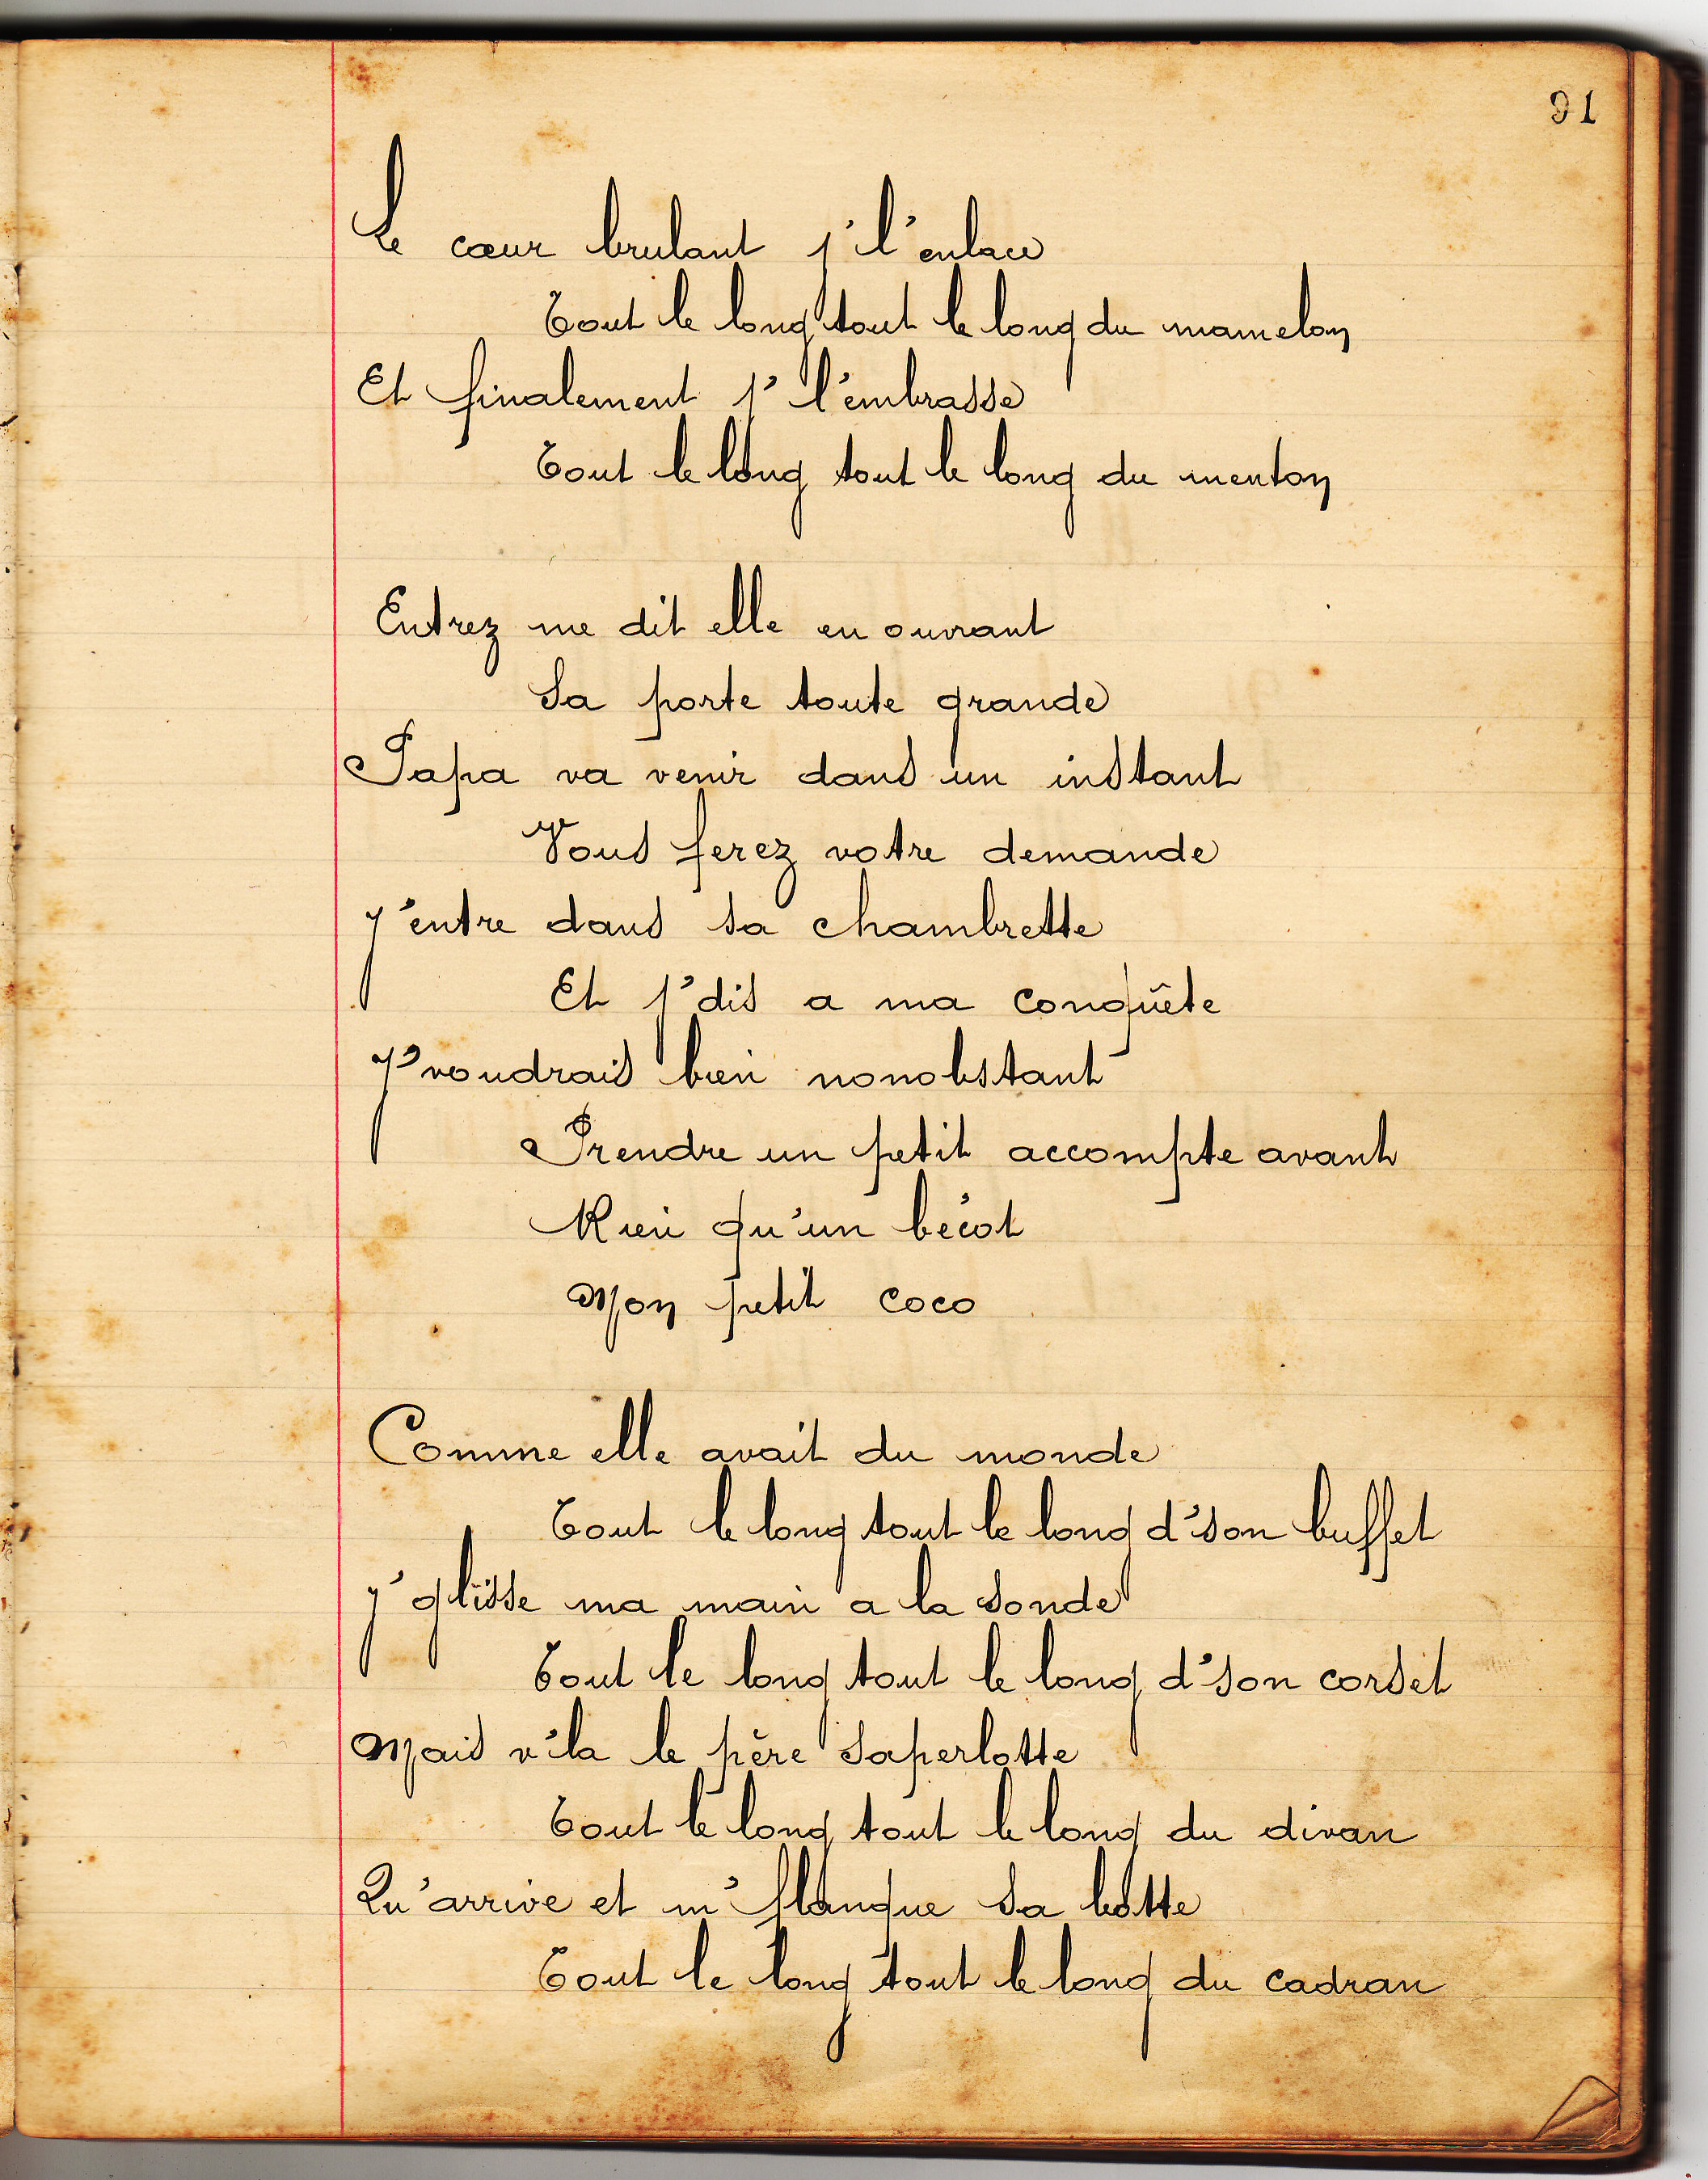 91
Le cœur brulant j'l'enlace
Tout le long tout le long du mamelon
Et finalement j'l'embrasse
Tout le long tout le long du menton
Entrez me dit elle en ouvrant
Sa porte toute grande
Papa va venir dans un instant
Vous ferez votre demande
J'entre dans sa chambrette
Et j'dis a ma conquête
J'voudrais bien nonobstant
Prendre un petit accompte avant
Rien qu'un bécot
Mon petit coco
Comme elle avait du monde
Tout le long tout le long d'son buffet
J'glisse ma main a la sonde
Tout le long tout le long d'son corset
Mais v'la le père saperlotte
Tout le long tout le long du divan
Qu'arrive et m'flanque sa botte
Tout le long tout le long du cadran